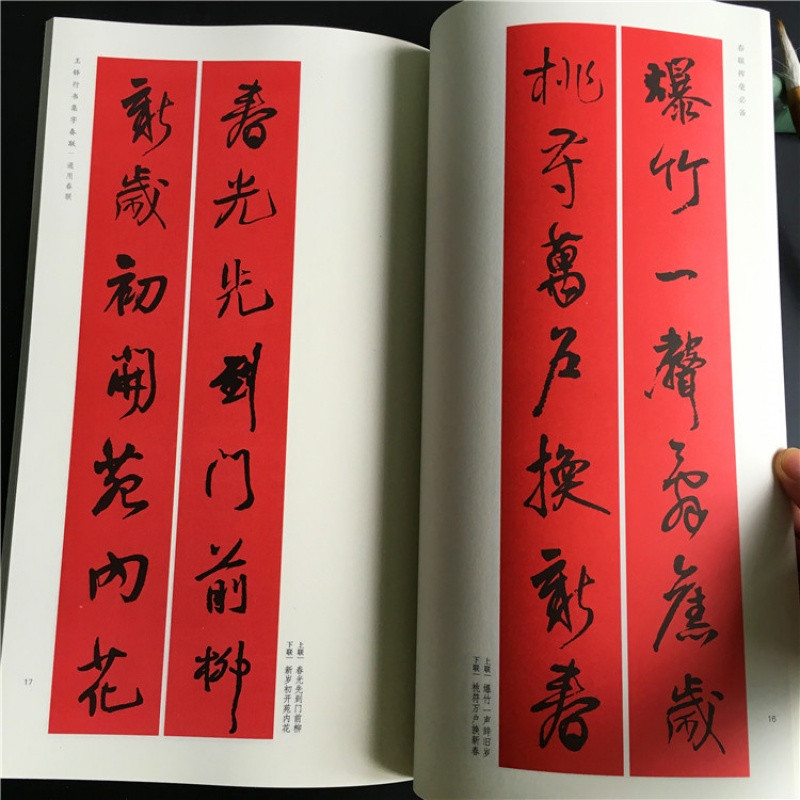 春联挥毫必备
爆竹一聲辭舊歲
桃符萬户換新春
上联｜爆竹一声辞旧岁
下联｜桃符万户换新春
16
春光先到门前柳
新歲初開苑内花
上联｜春光先到门前柳
下联｜新岁初开苑内花
王铎行书集字春联｜通用春联
17